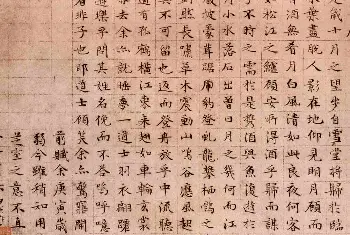 是歲十月之望步自雪堂將歸於臨
木葉盡脫人影在地仰見明月顧而
酒無肴月白風清如此良夜何客
如松江之鱸顧安所得酒乎歸而謀
不時之需於是攜酒與魚復遊於
月小水落石出曾日月之幾何而江
巖披蒙茸踞虎豹登虬龍攀栖鶻之
劃然長嘯草木震動山鳴谷應風起
其不可留也返而登舟放乎中流聽
適有孤鶴橫江東來翅如車輪玄裳
去余亦就睡夢一道士羽衣翩躚
遊樂乎問其姓名俛而不答嗚呼噫
者非子也耶道士顧笑余亦驚寤開
前賦余庚寅歲
弱今雖稍知用
室之意不直